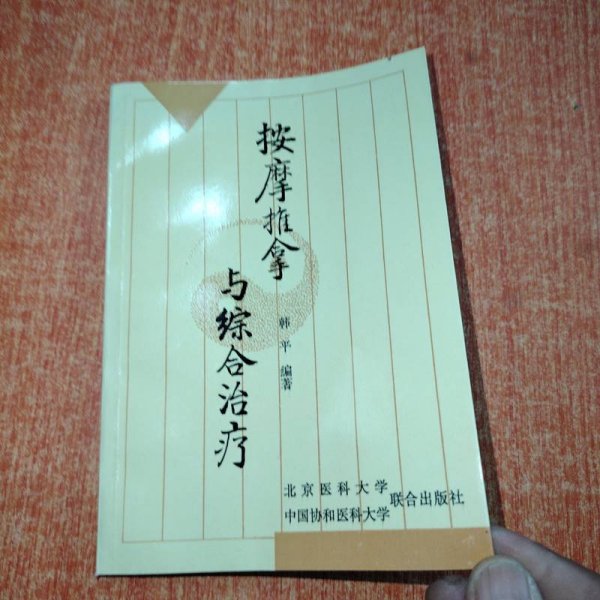 按摩推拿
与综合治疗
韩平 编著
北京医科大学
中国协和医科大学
联合出版社